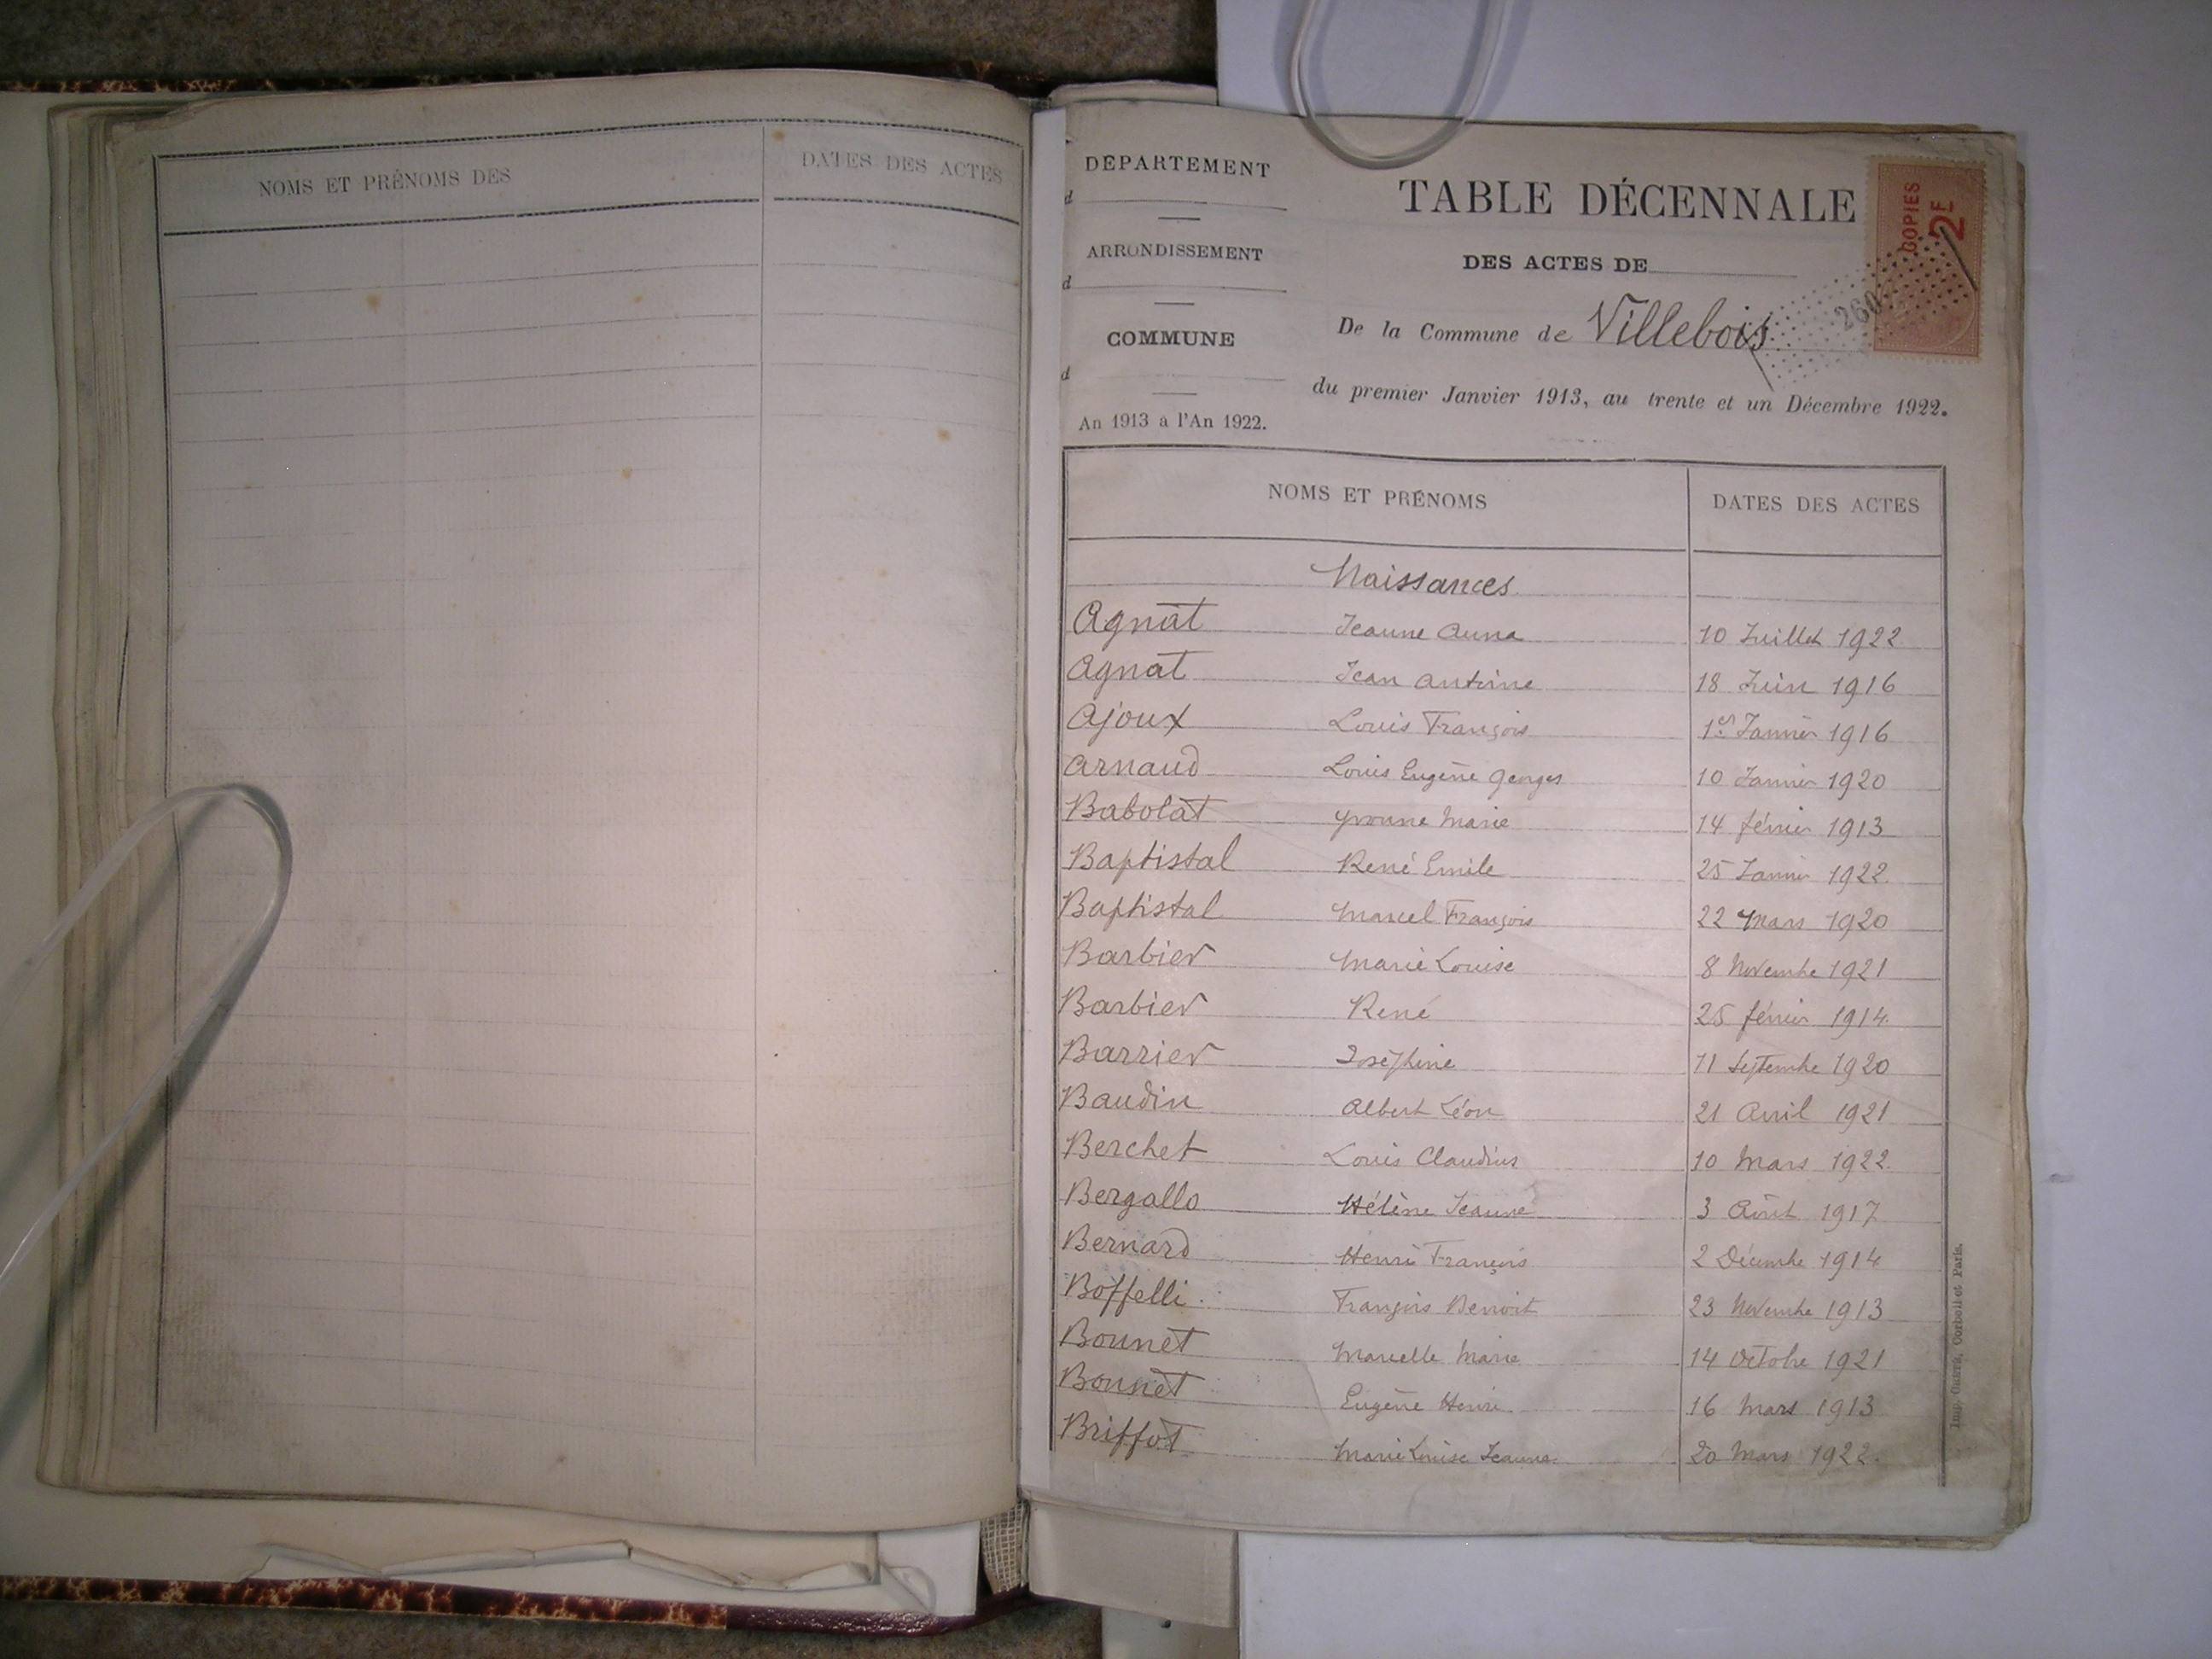 NOMS ET PRÉNOMS DES
DATES DES ACTES
DÉPARTEMENT
d
ARRONDISSEMENT
d
COMMUNE
d
An 1913 à l'An 1922.
TABLE DÉCENNALE
DES ACTES DE
De la Commune de Villebois
du premier Janvier 1913, au trente et un Décembre 1922.
COPIES
2F
260
NOMS ET PRÉNOMS DATES DES ACTES
Naissances
Agnat Jeanne Anna 10 Juillet 1922
Agnat Jean Antoine 18 Juin 1916
Ajoux Louis François 1er Janvier 1916
Arnaud Louis Eugène Georges 10 Janvier 1920
Babolat Yvonne Marie 14 février 1913
Baptistal René Emile 25 Janvier 1922
Baptistal Marcel François 22 Mars 1920
Barbier Marie Louise 8 Novembre 1921
Barbier René 25 février 1914
Barrier Joséphine 11 Septembre 1920
Baudin Albert Léon 21 Avril 1921
Berchet Louis Claudius 10 Mars 1922
Bergallo Hélène Jeanne 3 Août 1917
Bernard Henri François 2 Décembre 1914
Boffelli François Benoit 23 Novembre 1913
Bonnet Marcelle Marie 14 Octobre 1921
Bonnet Eugène Henri 16 Mars 1913
Briffot Marie Louise Jeanne 20 Mars 1922
Corbeil et Paris.